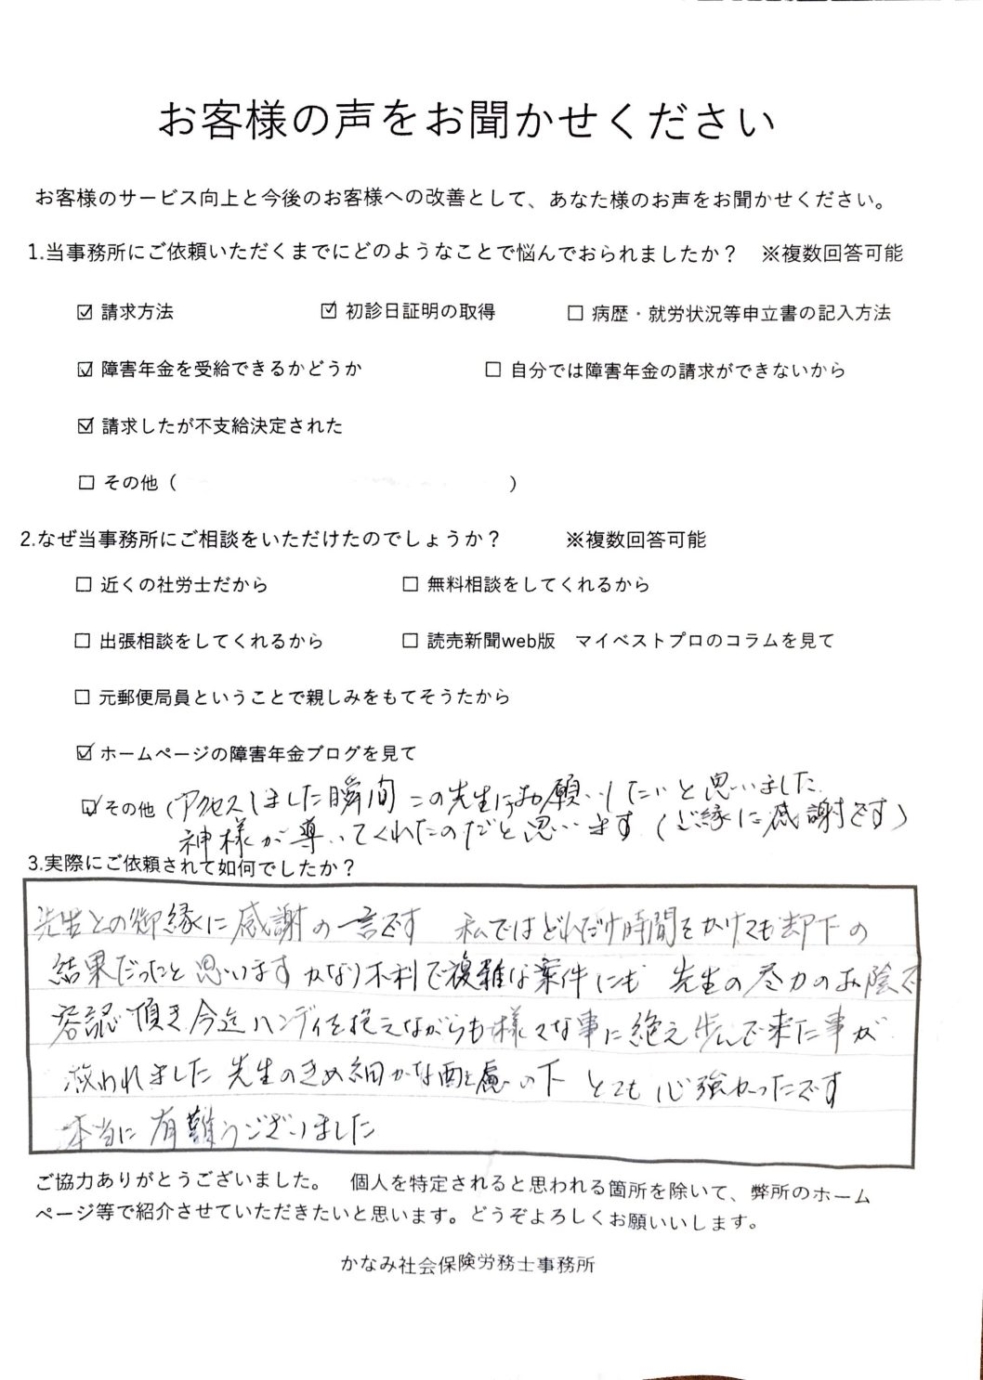 お客様の声をお聞かせください
お客様のサービス向上と今後のお客様への改善として、あなた様のお声をお聞かせください。
1.当事務所にご依頼いただくまでにどのようなことで悩んでおられましたか？　※複数回答可能
☑ 請求方法　☑ 初診日証明の取得　☐ 病歴・就労状況等申立書の記入方法
☑ 障害年金を受給できるかどうか　☐ 自分では障害年金の請求ができないから
☑ 請求したが不支給決定された
☐ その他（　）
2.なぜ当事務所にご相談をいただけたのでしょうか？　※複数回答可能
☐ 近くの社労士だから　☐ 無料相談をしてくれるから
☐ 出張相談をしてくれるから　☐ 読売新聞web版　マイベストプロのコラムを見て
☐ 元郵便局員ということで親しみをもてそうたから
☑ ホームページの障害年金ブログを見て
☑ その他（アクセスしました瞬間 この先生にお願いしたいと思いました
神様が導いてくれたのだと思います（ご縁に感謝です）
3.実際にご依頼されて如何でしたか？
先生との御縁に感謝の一言です　私ではどれだけ時間をかけても却下の
結果だったと思います かなり不利で複雑な案件にも 先生の尽力のお陰で
容認頂き今迄ハンディを抱えながらも様々な事に絶え歩んで来た事が
救われました 先生のきめ細かな配慮の下 とても心強かったです
本当に有難うございました
ご協力ありがとうございました。　個人を特定されると思われる箇所を除いて、弊所のホーム
ページ等で紹介させていただきたいと思います。どうぞよろしくお願いいします。
かなみ社会保険労務士事務所